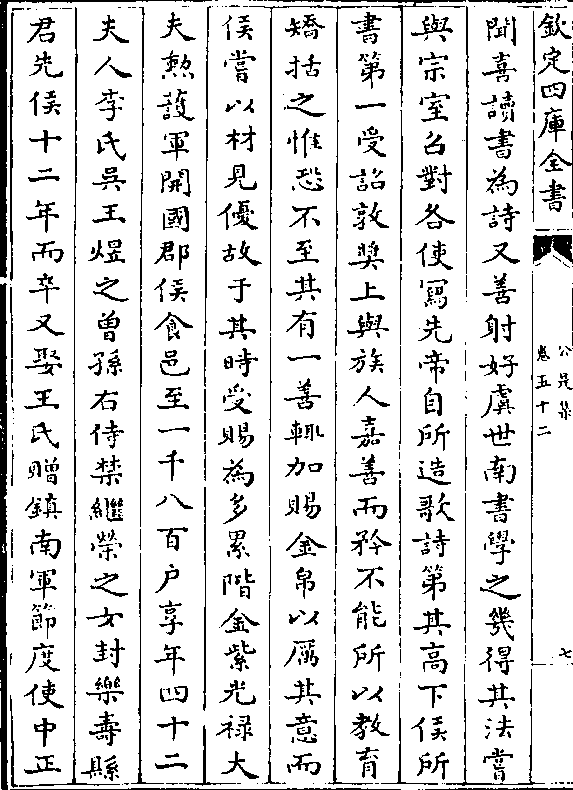 欽定四庫全書
公是集
卷五十二
七
聞喜讀書為詩又善射好虞世南書學之幾得其法嘗
與宗室召對各使寫先帝自所造歌詩第其高下侯所
書第一受詔敦奬上與族人嘉善而矜不能所以教育
矯括之惟恐不至其有一善輙加賜金帛以厲其意而
侯嘗以材見優故于其時受賜為多累階金紫光禄大
夫勲護軍開國郡侯食邑至一千八百户享年四十二
夫人李氏吳王煜之曾孫右侍禁繼榮之女封樂壽縣
君先侯十二年而卒又娶王氏贈鎮南軍節度使中正